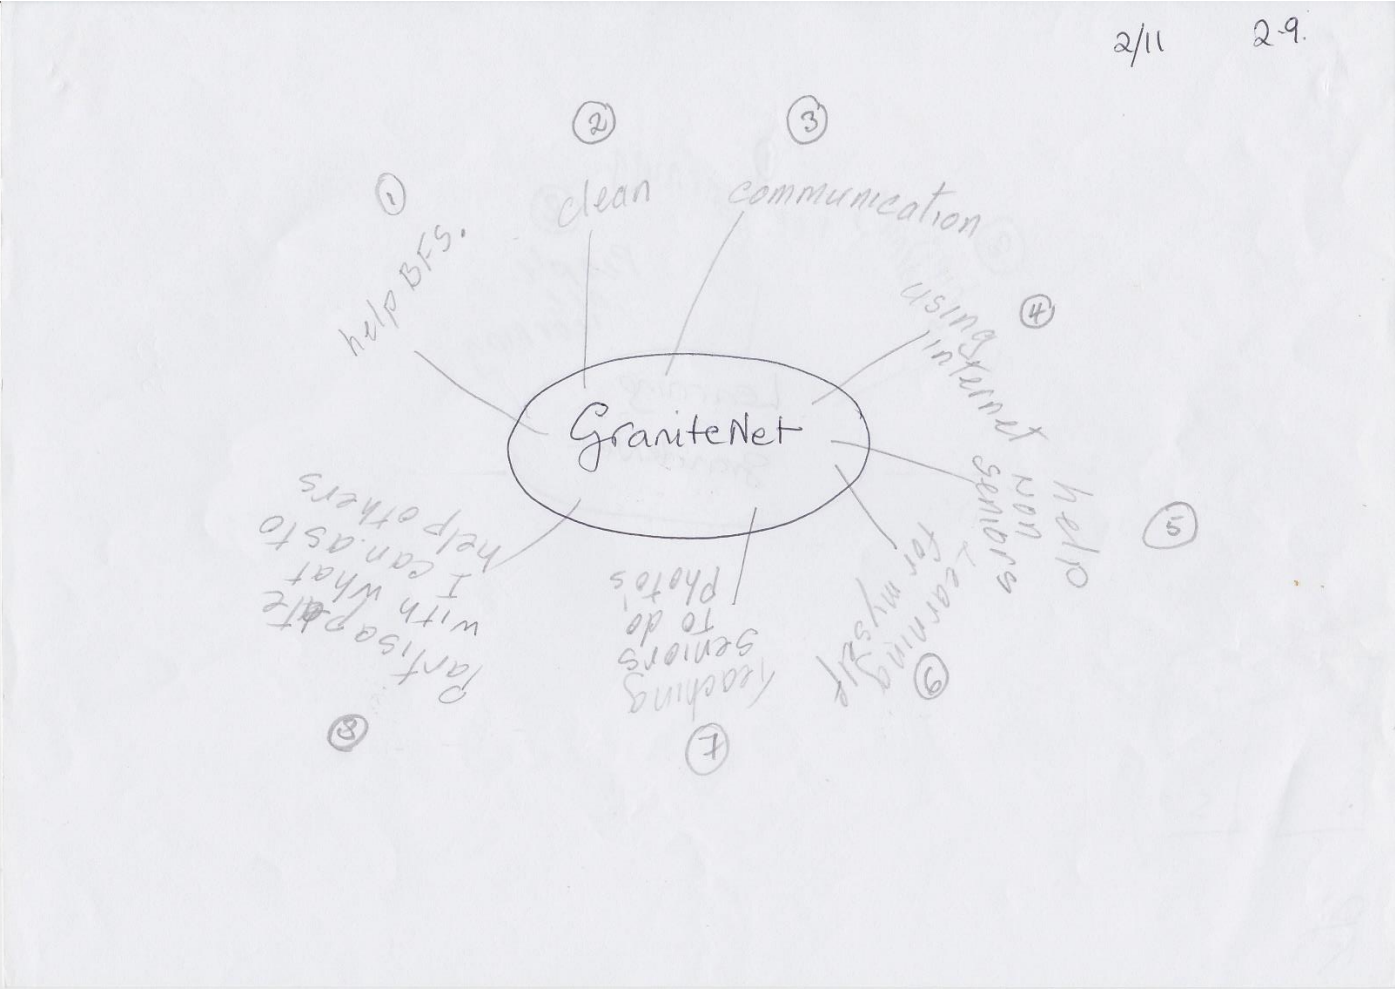 2/11 2-9.
1
help BFS.
2
clean
3
communication
4
using
internet
5
help
non
seniors
6
Learning
for myself
7
Teaching
seniors
To do
Photo's
8
Partisapate
with what
I can as to
help others
GraniteNet